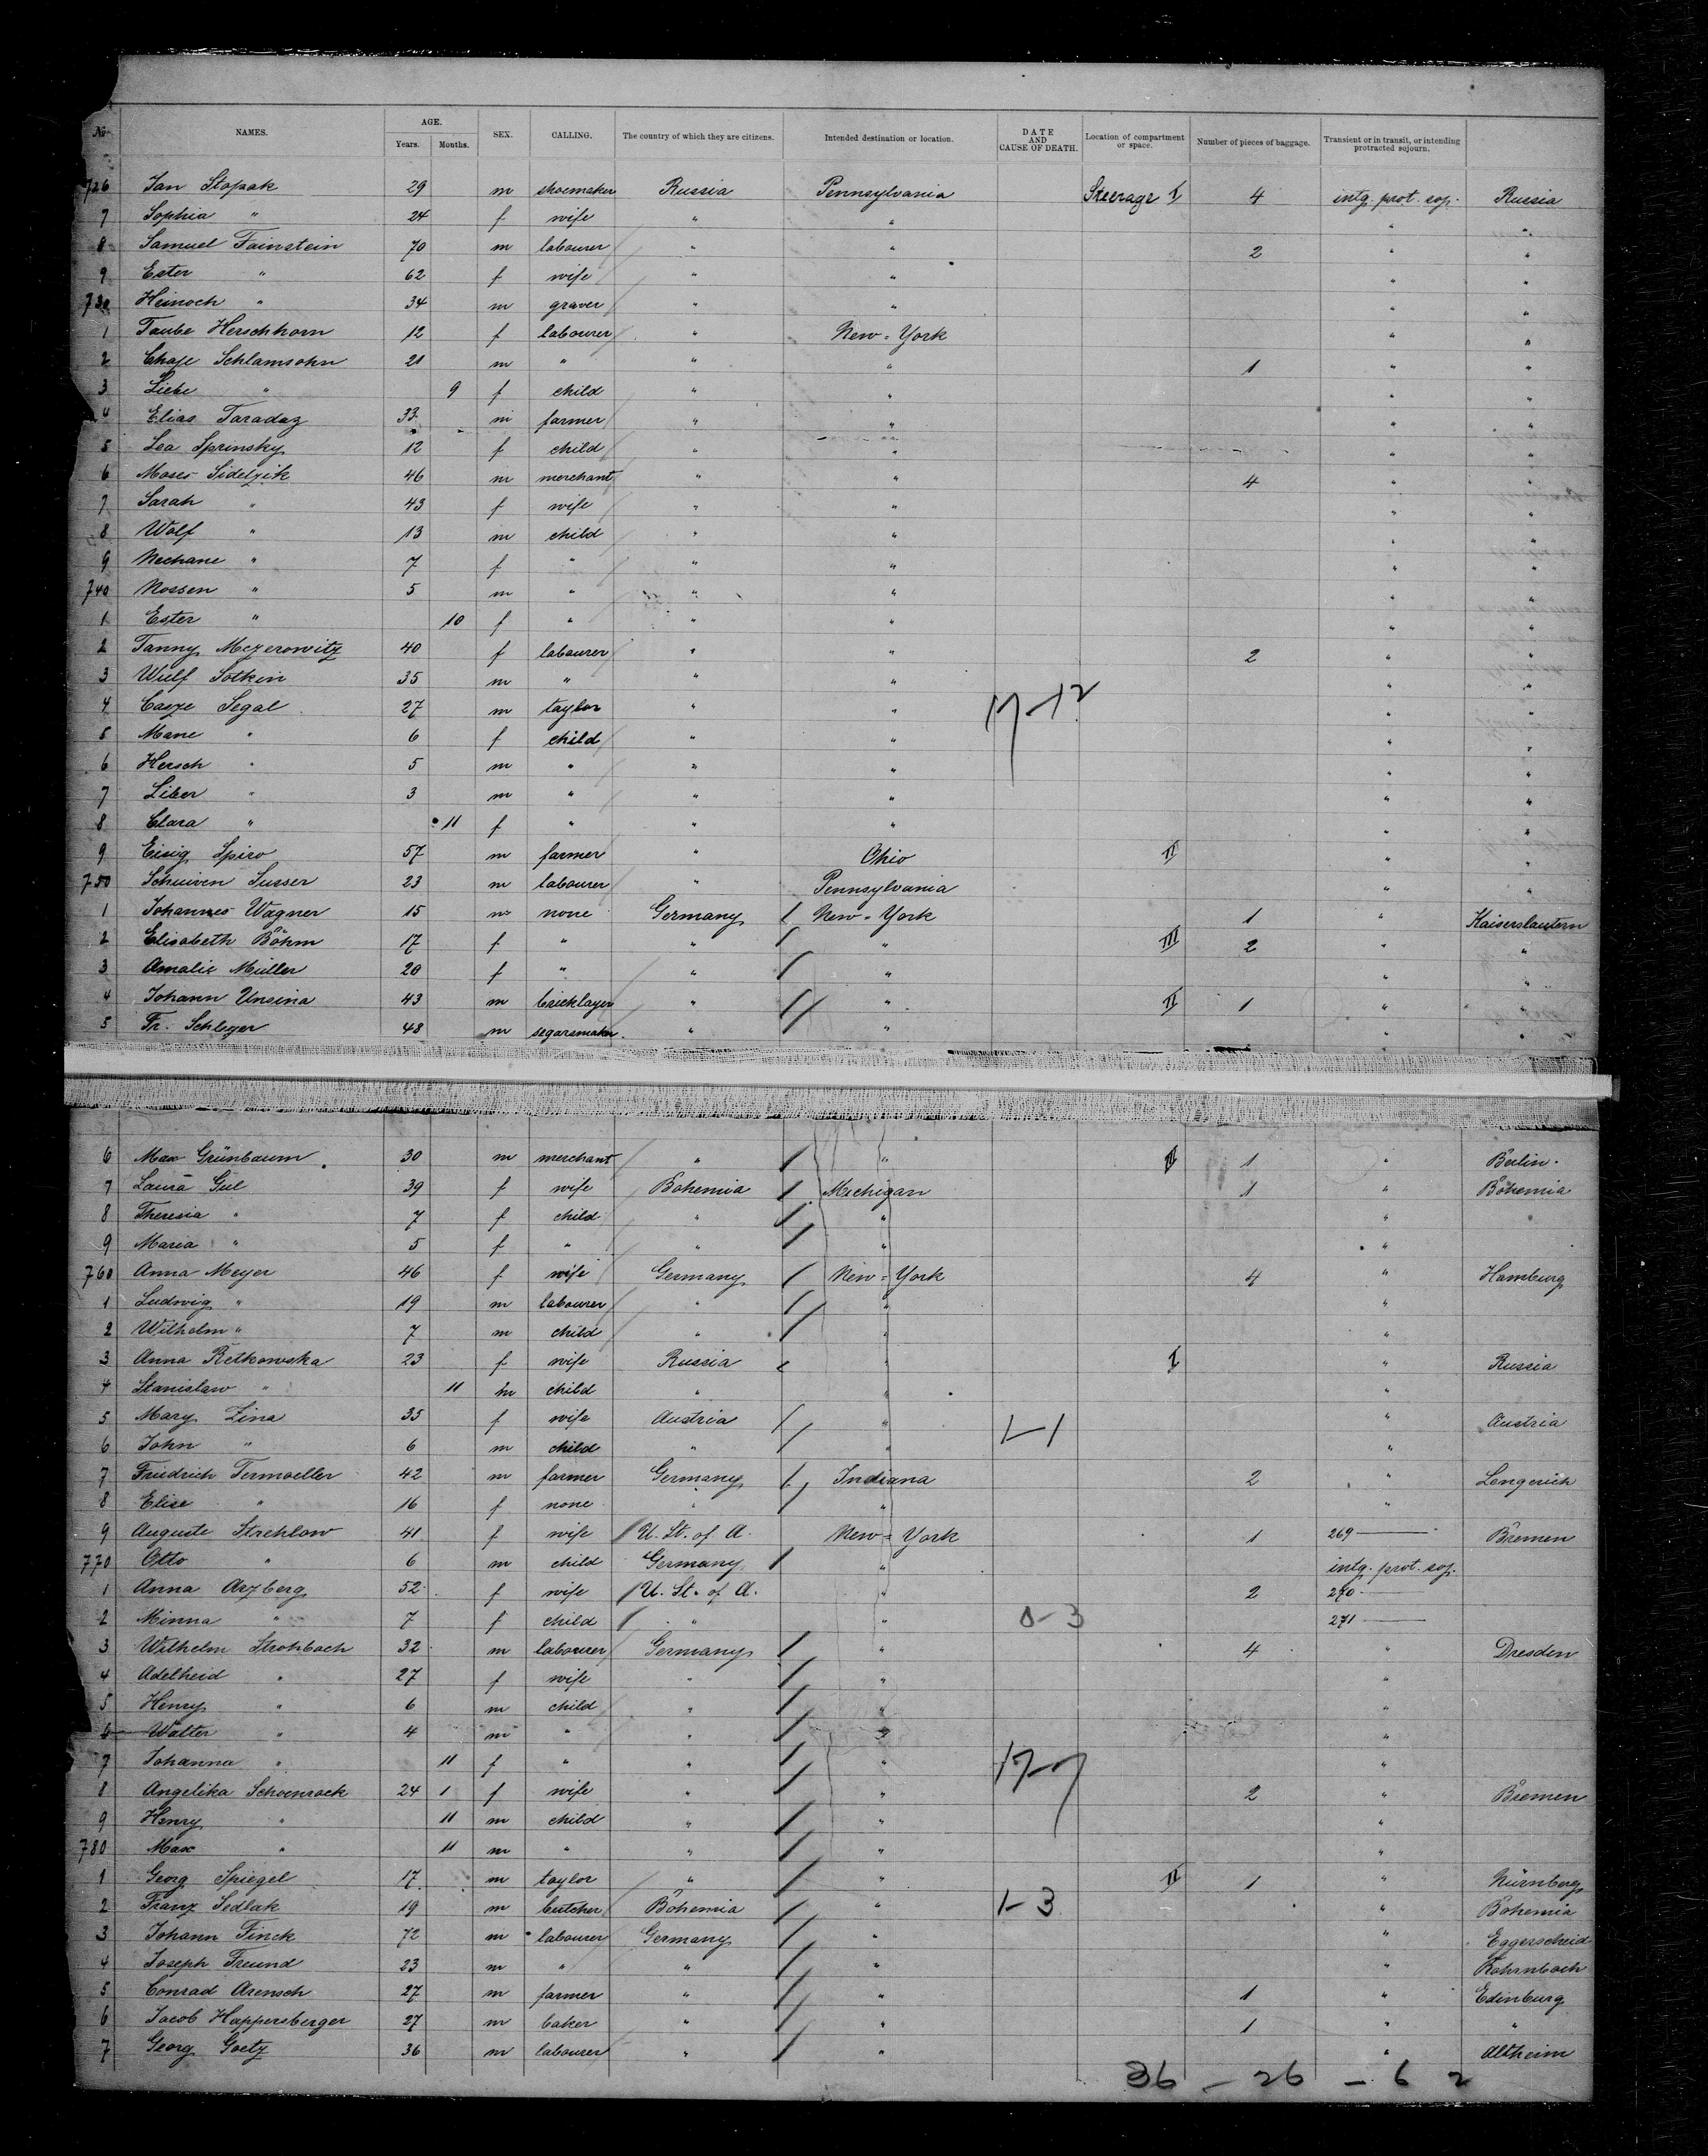 No. NAMES. AGE. Years. Months. SEX. CALLING. The country of which they are citizens. Intended destination or location. DATE AND CAUSE OF DEATH. Location of compartment or space. Number of pieces of baggage. Transient or in transit, or intending protracted sojourn.
726 Jan Stopak 29 m shoemaker Russia Pennsylvania Steerage I 4 intg. prot. soj. Russia
7 Sophia " 24 f wife " " " "
8 Samuel Fainstein 70 m labourer " " 2 " "
9 Ester " 62 f wife " " " "
730 Heinoch " 34 m graver " " " "
1 Taube Herschhorn 12 f labourer " New-York " "
2 Chaje Schlamsohn 21 m " " " 1 " "
3 Liebe " 9 f child " " " "
4 Elias Taradaz 33 m farmer " " " "
5 Lea Sprinsky 12 f child " " " "
6 Moses Sidelzik 46 m merchant " " 4 " "
7 Sarah " 43 f wife " " " "
8 Wolf " 13 m child " " " "
9 Nechane " 7 f " " " " "
740 Nossen " 5 m " " " " "
1 Ester " 10 f " " " " "
2 Fanny Mezerowitz 40 f labourer " " 2 " "
3 Wulf Sotkin 35 m " " " " "
4 Casze Segal 27 m taylor " " 17-12 " "
5 Mane " 6 f child " " " "
6 Hersch " 5 m " " " " "
7 Liber " 3 m " " " " "
8 Clara " 11 f " " " " "
9 Eisig Spiro 57 m farmer " Ohio II " "
750 Schuiven Susser 23 m labourer " Pennsylvania " "
1 Johannes Wagner 15 m none Germany New-York 1 " Kaiserslautern
2 Elisabeth Böhm 17 f " " " III 2 " "
3 Amalie Müller 20 f " " " " "
4 Johann Unsina 43 m bricklayer " " II 1 " "
5 Fr. Schleyer 48 m segarsmaker " " " "
6 Max Grünbaum 30 m merchant " " II 1 " Berlin
7 Laura Gul 39 f wife Bohemia Michigan 1 " Bohemia
8 Theresia " 7 f child " " "
9 Maria " 5 f " " " "
760 Anna Meyer 46 f wife Germany New-York 4 " Hamburg
1 Ludwig " 19 m labourer " " "
2 Wilhelm " 7 m child " " "
3 Anna Retkowska 23 f wife Russia " I " Russia
4 Stanislaw " 11 m child " " "
5 Mary Zina 35 f wife Austria " 1-1 " Austria
6 John " 6 m child " " "
7 Friedrich Termoeller 42 m farmer Germany Indiana 2 " Lengerich
8 Elise " 16 f none " " "
9 Auguste Strehlow 41 f wife U. St. of A. New-York 1 269 Bremen
770 Otto " 6 m child Germany " intg. prot. soj.
1 Anna Arzberg 52 f wife U. St. of A. " 2 270
2 Minna " 7 f child " " 0-3 271
3 Wilhelm Strohbach 32 m labourer Germany " 4 " Dresden
4 Adelheid " 27 f wife " " "
5 Henry " 6 m child " " "
6 Walter " 4 m " " " "
7 Johanna " 11 f " " " 17-7 "
8 Angelika Schoenrock 24 1 f wife " " 2 " Bremen
9 Henry " 11 m child " " "
780 Max " 11 m " " " "
1 Georg Spiegel 17 m taylor " " II 1 " Nürnberg
2 Franz Sedlak 19 m butcher Bohemia " 1-3 " Bohemia
3 Johann Finck 72 m labourer Germany " " Eggerscheid
4 Joseph Freund 23 m " " " " Rohrnbach
5 Conrad Arensch 27 m farmer " " 1 " Edinburg
6 Jacob Happersberger 27 m baker " " 1 " "
7 Georg Goetz 36 m labourer " " " Altheim
36 - 26 - 6 2